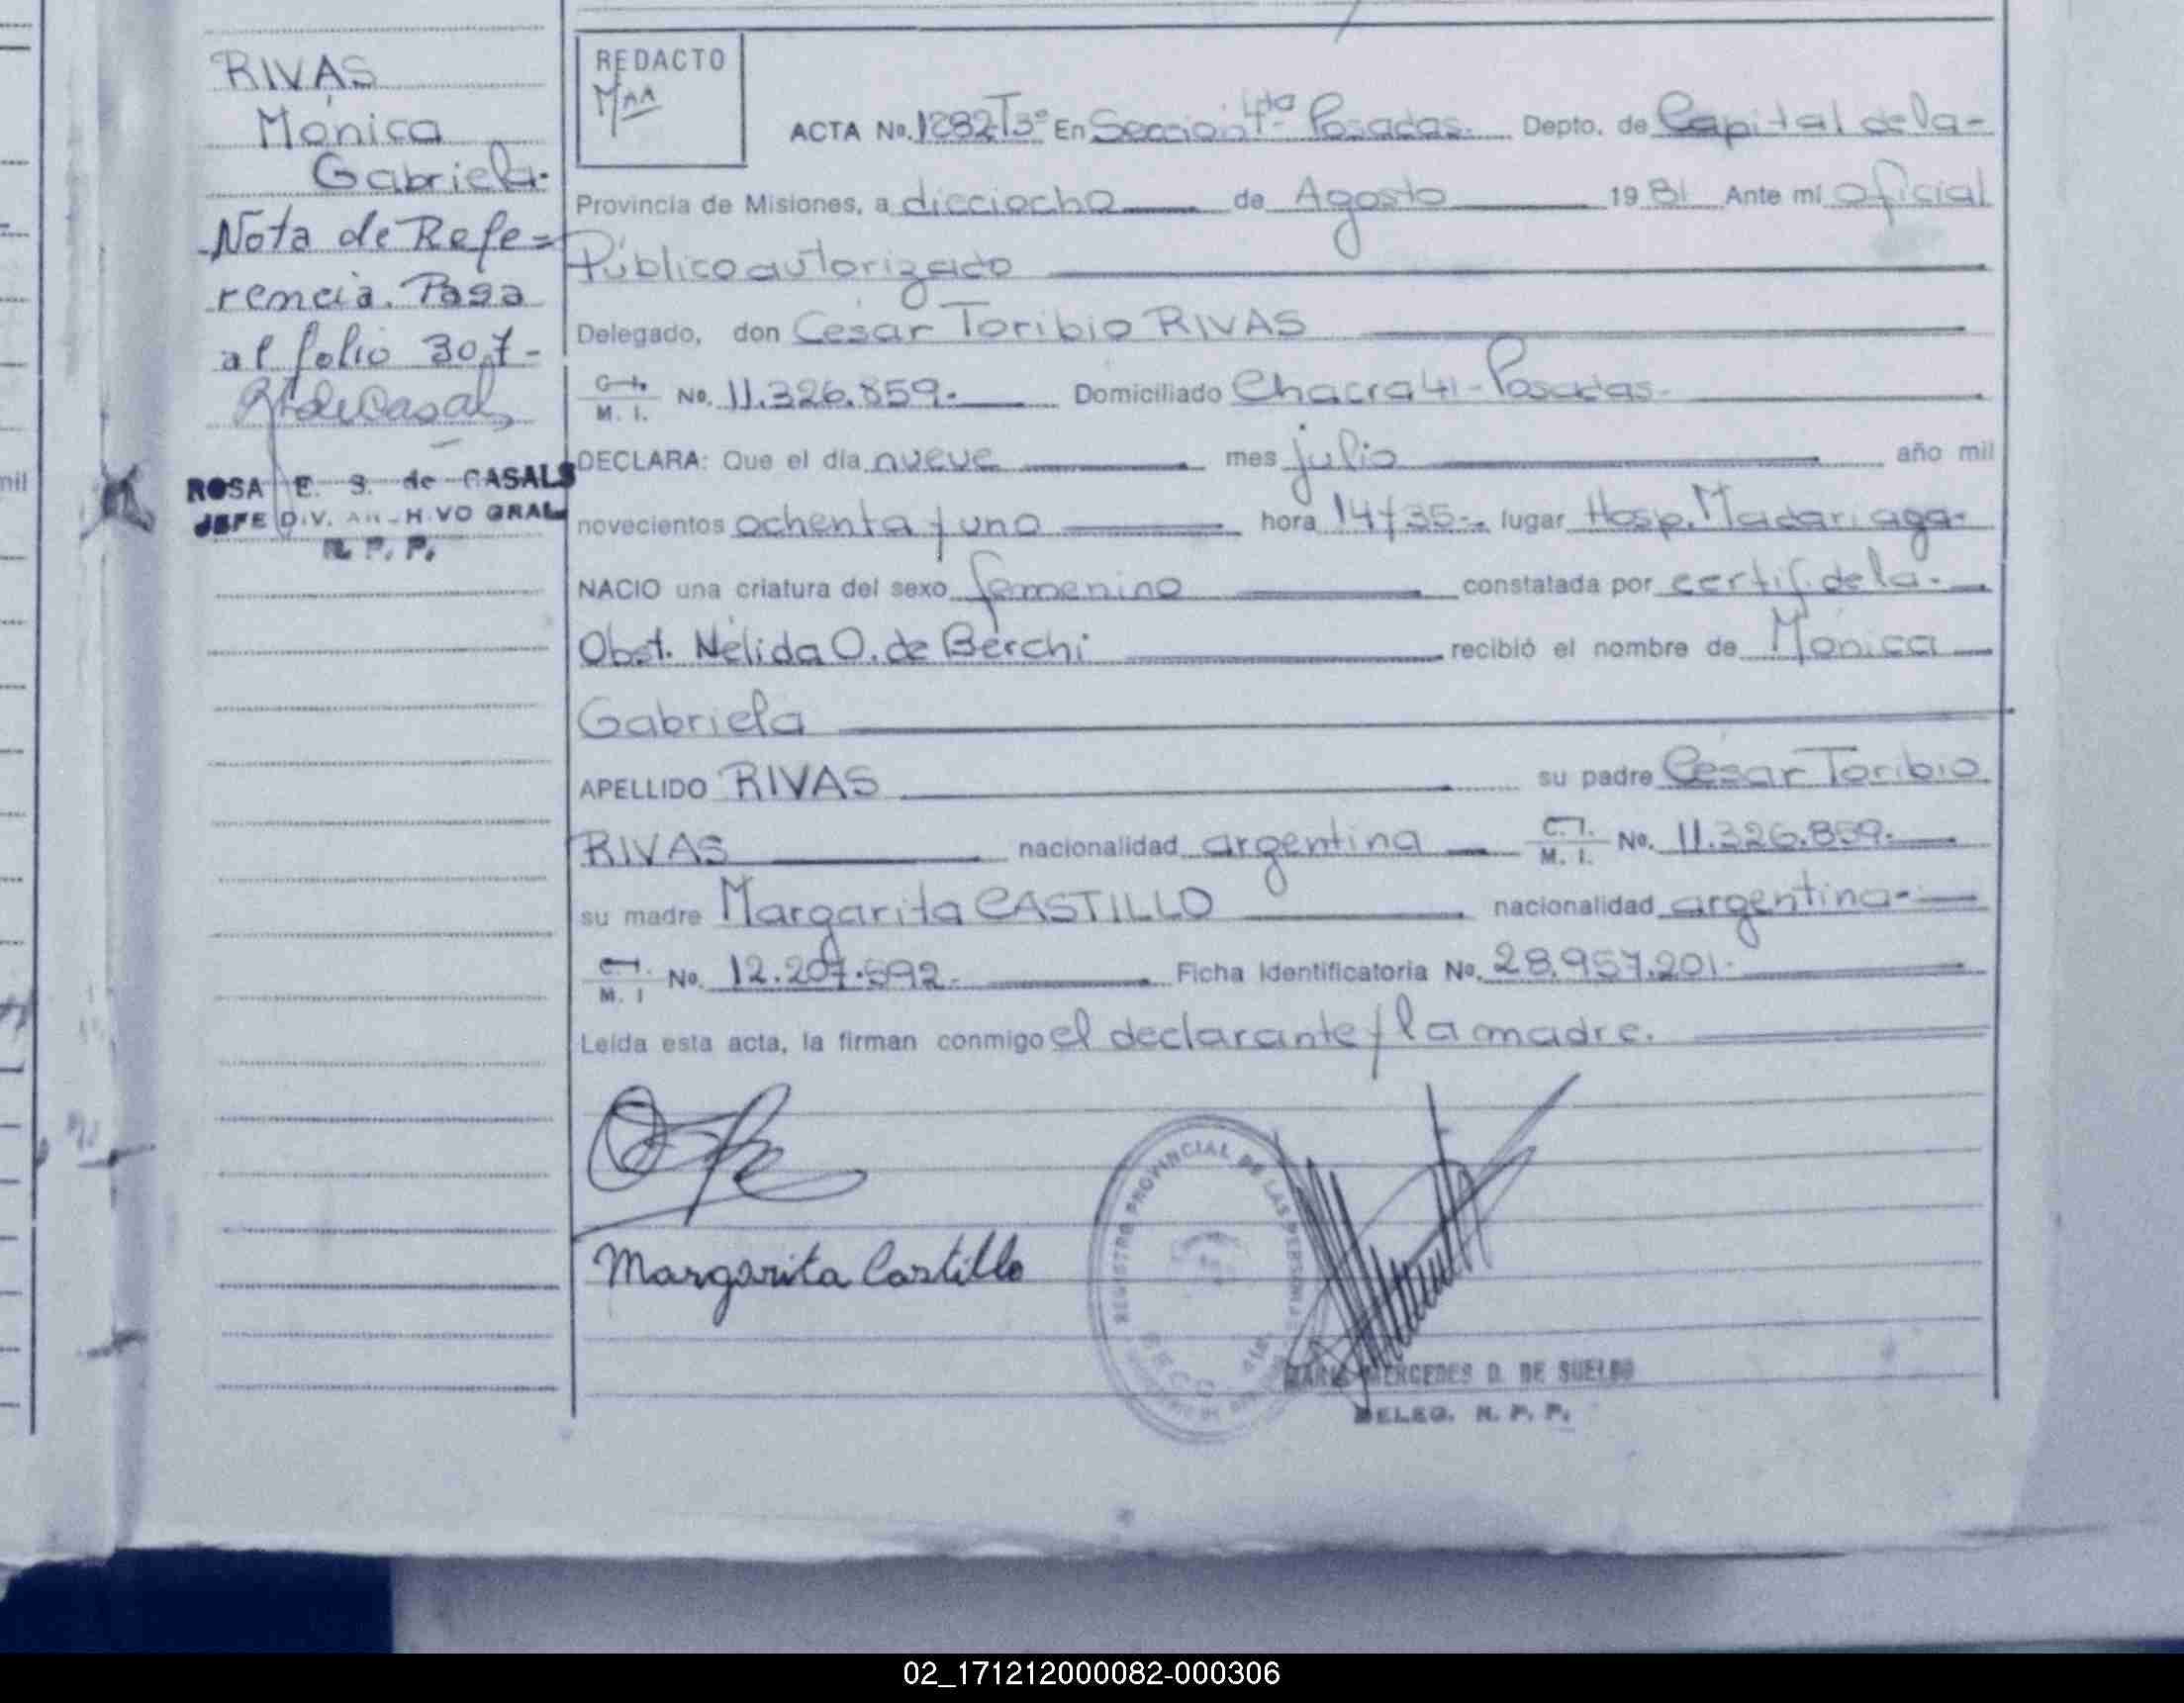 RIVAS
Mónica
Gabriela.
Nota de Refe=
rencia. Pasa
al folio 307-
ROSA E. S. de CASALS
JEFE DIV. ARCHIVO GRAL.
R. P. P.
REDACTO
MAA
ACTA No. 1282 Tº3 En Sección 4ta Posadas. Depto. de Capital de la-
Provincia de Misiones, a dieciocho de Agosto 1981 Ante mí oficial
Público autorizado
Delegado, don César Toribio RIVAS
C. I. M. I. No. 11.326.859.- Domiciliado Chacra 41 - Posadas-
DECLARA: Que el día nueve mes julio año mil
novecientos ochenta y uno hora 14 y 35-. lugar Hosp. Madariaga-
NACIO una criatura del sexo femenino constatada por certif. de la-
Obst. Nélida O. de Berchi recibió el nombre de Mónica
Gabriela
APELLIDO RIVAS su padre César Toribio
RIVAS nacionalidad argentina C. I. M. I. No. 11.326.859.
su madre Margarita CASTILLO nacionalidad argentina-
C. I. M. I No. 12.207.592.- Ficha Identificatoria No. 28.957.201.
Leída esta acta, la firman conmigo el declarante y la madre.
Margarita Castillo
REGISTRO PROVINCIAL DE LAS PERSONAS
MARIA MERCEDES D. DE SUELDO
DELEG. R. P. P.
02_171212000082-000306